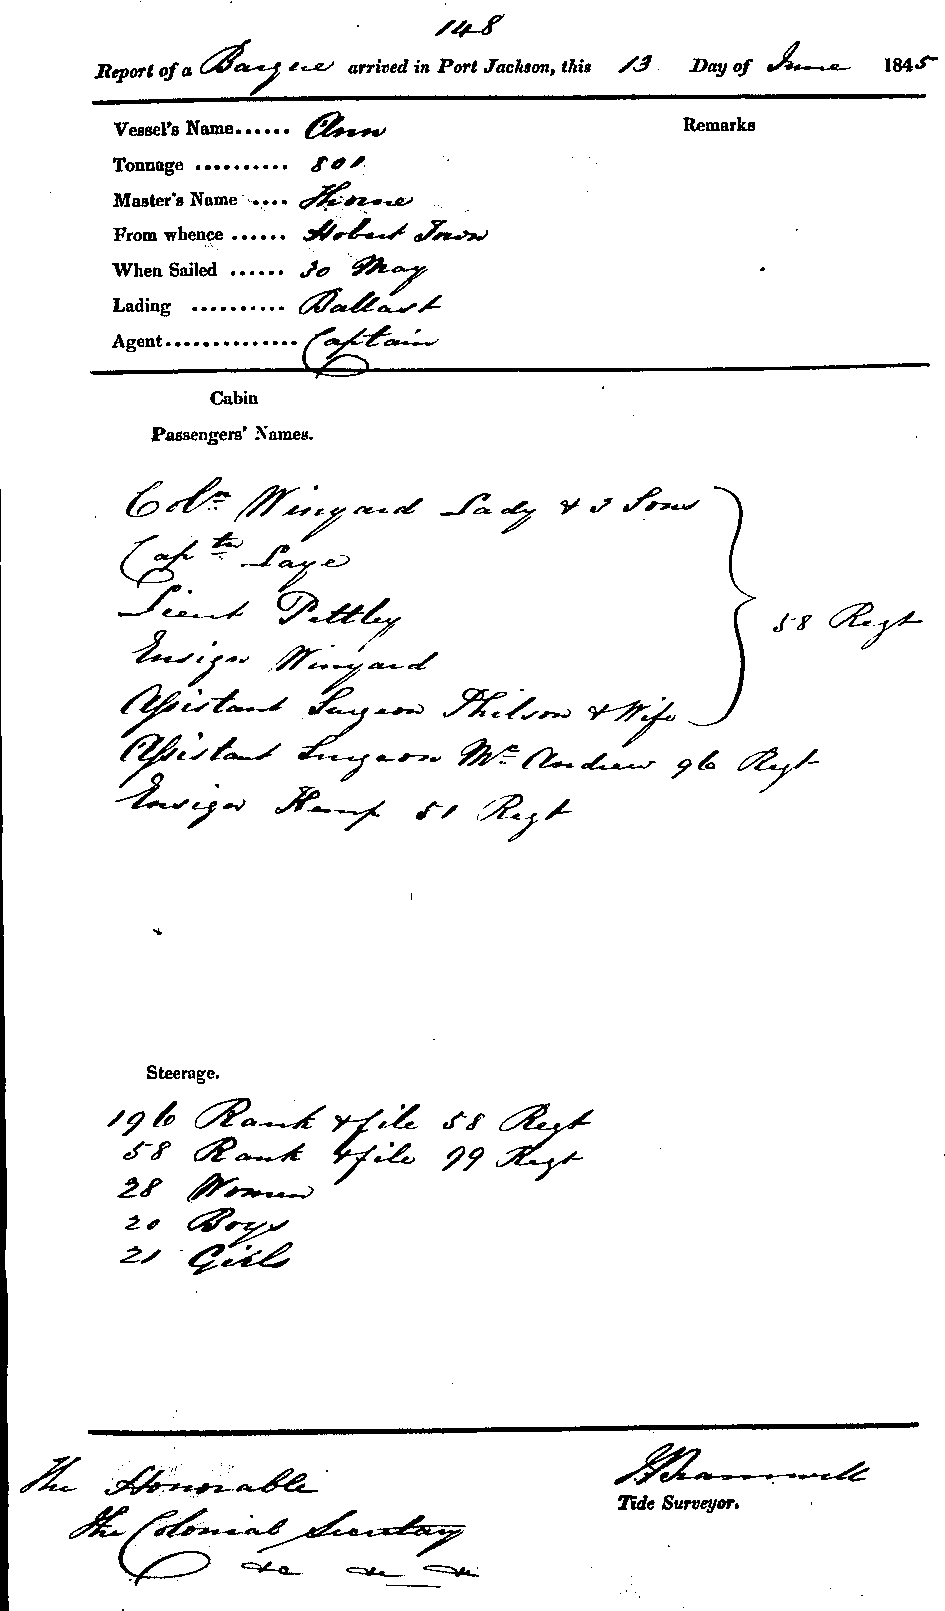 148
Report of a Barque arrived in Port Jackson, this 13 Day of June 1845
Vessel's Name...... Ann
Remarks
Tonnage .......... 801
Master's Name .... Thorne
From whence ...... Hobart Town
When Sailed ...... 30 May
Lading .......... Ballast
Agent............... Captain
Cabin
Passengers' Names.
Coln Winyard Lady & 3 Sons
Captn Laye
Lieut Pettley
58 Regt
Ensign Winyard
Assistant Surgeon Philson & Wife
Assistant Surgeon Mc Andrew 96 Regt
Ensign Kemp 51 Regt
Steerage.
196 Rank & file 58 Regt
58 Rank & file 99 Regt
28 Women
20 Boys
21 Girls
The Honorable
The Colonial Secretary
&c &c &c
H Bramwell
Tide Surveyor.